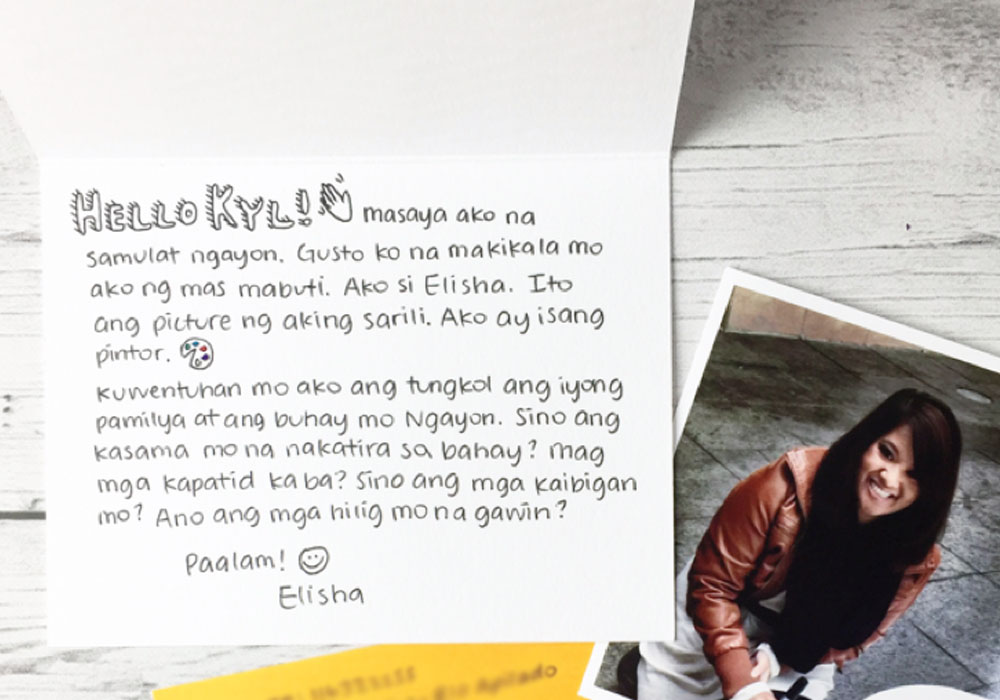 HELLO KYL! masaya ako na
samulat ngayon. Gusto ko na makikala mo
ako ng mas mabuti. Ako si Elisha. Ito
ang picture ng aking sarili. Ako ay isang
pintor.
kuwentuhan mo ako ang tungkol ang iyong
pamilya at ang buhay mo Ngayon. Sino ang
kasama mo na nakatira sa bahay? Mag
mga kapatid ka ba? Sino ang mga kaibigan
mo? Ano ang mga hilig mo na gawin?
Paalam!
Elisha
Apilado